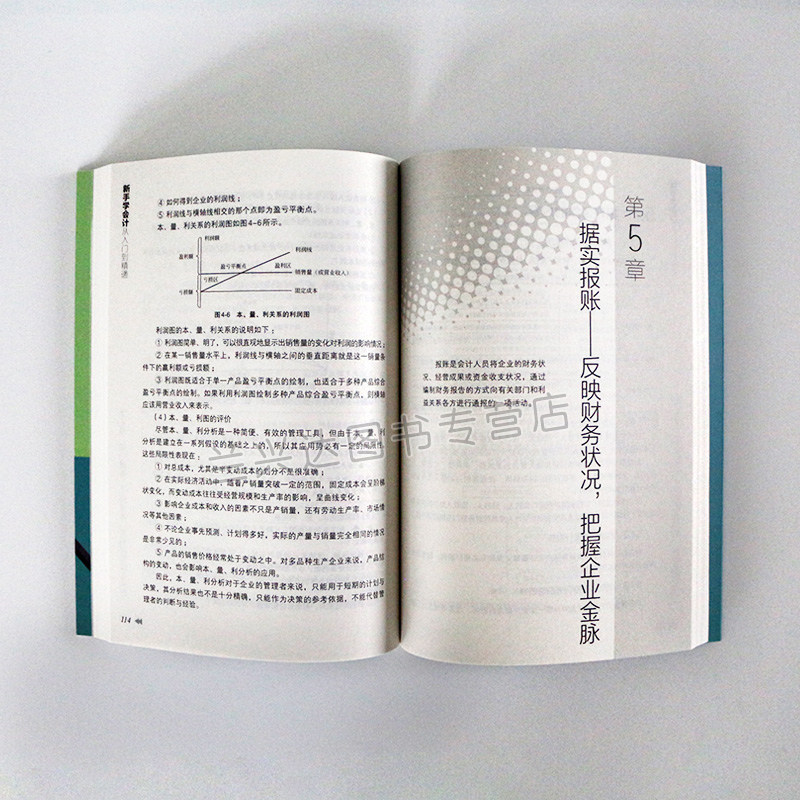 新手学会计从入门到精通
④ 如何得到企业的利润线；
⑤ 利润线与横轴线相交的那个点即为盈亏平衡点。
本、量、利关系的利润图如图4-6所示。
利润额
利润线
盈利额
盈亏平衡点
盈利区
销售量（或营业收入）
亏损区
亏损额
固定成本
图4-6 本、量、利关系的利润图
利润图的本、量、利关系的说明如下：
① 利润图简单、明了，可以很直观地显示出销售量的变化对利润的影响情况；
② 在某一销售量水平上，利润线与横轴之间的垂直距离就是这一销量条
件下的赢利额或亏损额；
③ 利润图既适合于单一产品盈亏平衡点的绘制，也适合于多种产品综合
盈亏平衡点的绘制。如果利用利润图绘制多种产品综合盈亏平衡点，则横轴
应该用营业收入来表示。
（4）本、量、利图的评价
尽管本、量、利分析是一种简便、有效的管理工具，但由于本、量、利
分析是建立在一系列假设的基础之上的，所以其应用势必有一定的局限性。
这些局限性表现在：
① 对总成本，尤其是半变动成本的划分不是很准确；
② 在实际经济活动中，随着产销量突破一定的范围，固定成本会呈阶梯
状变化，而变动成本往往受经营规模和生产率的影响，呈曲线变化；
③ 影响企业成本和收入的因素不只是产销量，还有劳动生产率、市场情
况等其他因素；
④ 不论企业事先预测、计划得多好，实际的产量与销量完全相同的情况
是非常少见的；
⑤ 产品的销售价格经常处于变动之中。对多品种生产企业来说，产品结
构的变动，也会影响本、量、利分析的应用。
因此，本、量、利分析对于企业的管理者来说，只能用于短期的计划与
决策，其分析结果也不是十分精确，只能作为决策的参考依据，不能代替管
理者的判断与经验。
114
第5章
据实报账——反映财务状况，把握企业金脉
报账是会计人员将企业的财务状
况、经营成果或资金收支状况，通过
编制财务报告的方式向有关部门和利
益关系各方进行通报的一项活动。
兰兴达图书专营店